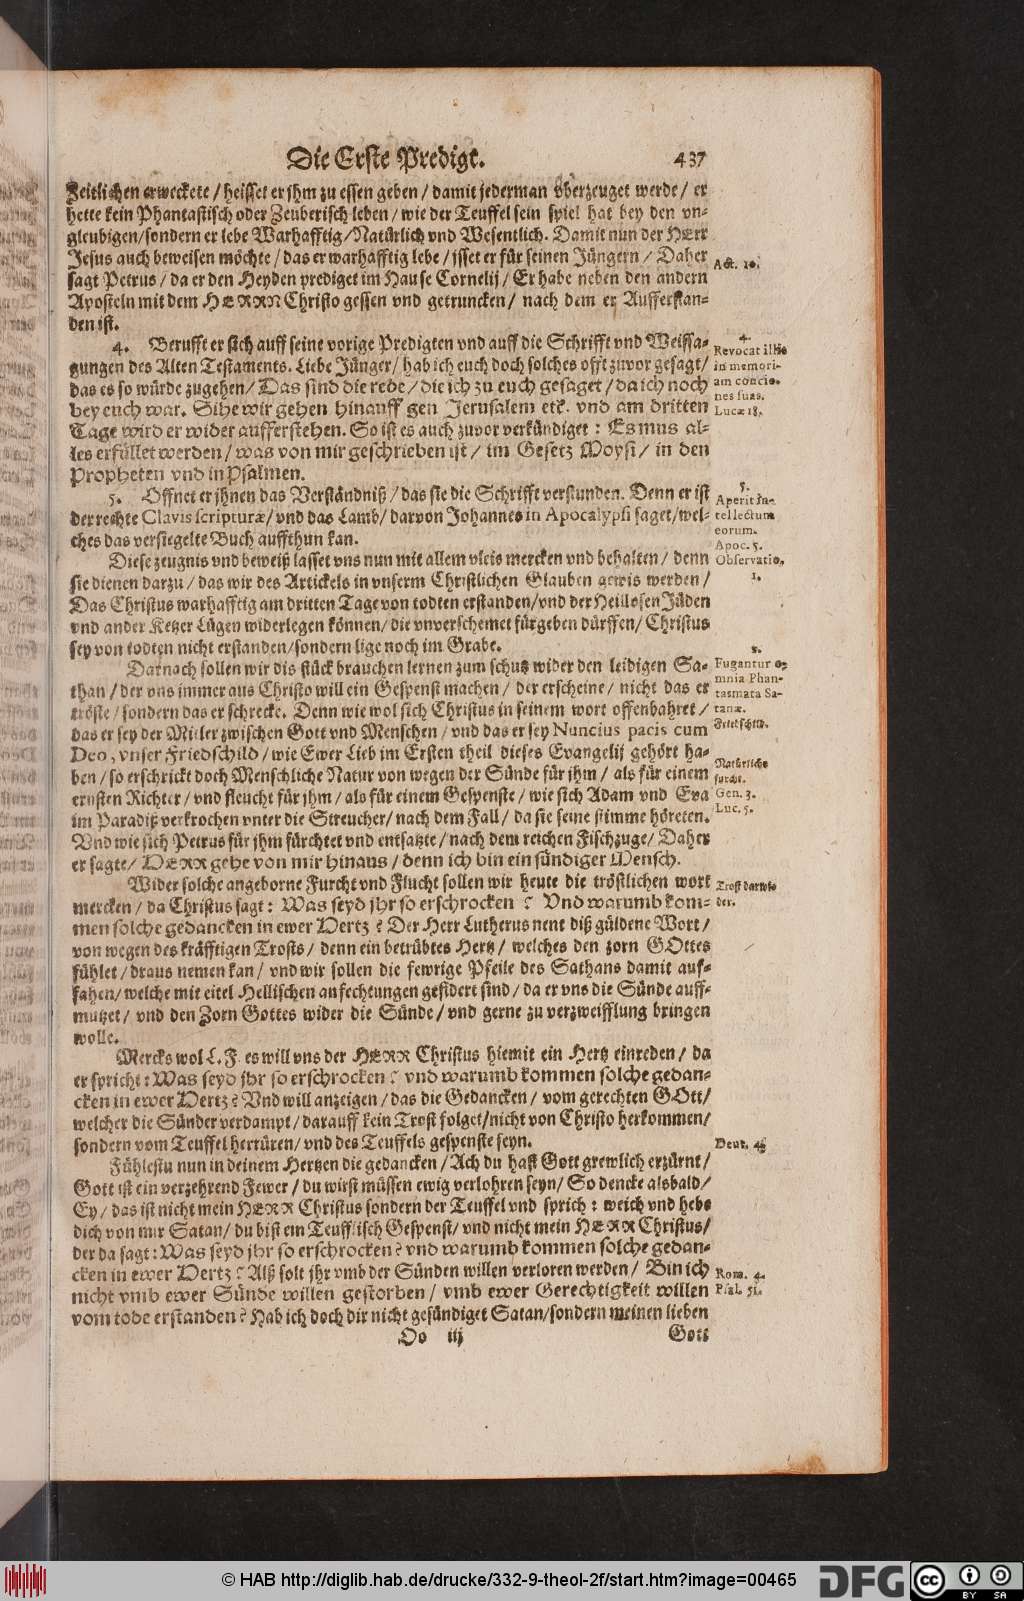 Die Erste Predigt. 437
Zeitlichen erweckete / heisset er jhm zu essen geben / damit jederman vberzeuget werde / er
hette kein Phantastisch oder Zeuberisch leben / wie der Teuffel sein spiel hat bey den vn-
gleubigen/sondern er lebe Warhafftig/Natürlich vnd Wesentlich. Damit nun der HErr
Jesus auch beweisen möchte / das er warhafftig lebe / jsset er für seinen Jüngern / Daher
sagt Petrus / da er den Heyden prediget im Hause Cornelij / Er habe neben den andern
Aposteln mit dem HERRN Christo gessen vnd getruncken / nach dem er Aufferstan-
den ist.
Act. 10.
4. Berufft er sich auff seine vorige Predigten vnd auff die Schrifft vnd Weissa-
gungen des Alten Testaments. Liebe Jünger/ hab ich euch doch solches offt zuvor gesagt/
das es so würde zugehen/ Das sind die rede / die ich zu euch gesaget / da ich noch
bey euch war. Sihe wir gehen hinauff gen Jerusalem etc. vnd am dritten
Tage wird er wider aufferstehen. So ist es auch zuvor verkündiget : Es mus al-
les erfüllet werden / was von mir geschrieben ist / im Gesetz Moysi / in den
Propheten vnd in Psalmen.
4.
Revocat illis
in memori-
am concio-
nes suas.
Lucæ 18.
5. Öffnet er jhnen das Verständniß / das sie die Schrifft verstunden. Denn er ist
der rechte Clavis scripturæ/ vnd das Lamb/ darvon Johannes in Apocalypsi saget/wel-
ches das versiegelte Buch auffthun kan.
5.
Aperit in-
tellectum
eorum.
Apoc. 5.
Diese zeugnis vnd beweiß lasset vns nun mit allem vleis mercken vnd behalten / denn
sie dienen darzu / das wir des Artickels in vnserm Christlichen Glauben gewis werden /
Das Christus warhafftig am dritten Tage von todten erstanden/vnd der Heillosen Jüden
vnd ander Ketzer Lügen widerlegen können/ die vnverschemet fürgeben dürffen/ Christus
sey von todten nicht erstanden/sondern lige noch im Grabe.
Observatio.
1.
Darnach sollen wir dis stück brauchen lernen zum schutz wider den leidigen Sa-
than / der vns immer aus Christo will ein Gespenst machen / der erscheine / nicht das er
tröste / sondern das er schrecke. Denn wie wol sich Christus in seinem wort offenbahret /
das er sey der Mitler zwischen Gott vnd Menschen / vnd das er sey Nuncius pacis cum
Deo, vnser Friedschild / wie Ewer Lieb im Ersten theil dieses Evangelij gehört ha-
ben / so erschrickt doch Menschliche Natur von wegen der Sünde für jhm / als für einem
ernsten Richter / vnd fleucht für jhm / als für einem Gespenste / wie sich Adam vnd Eva
im Paradiß verkrochen vnter die Streucher/ nach dem Fall / da sie seine stimme höreten.
Vnd wie sich Petrus für jhm fürchtet vnd entsatzte / nach dem reichen Fischzuge/ Daher
er sagte/ HERR gehe von mir hinaus / denn ich bin ein sündiger Mensch.
2.
Fugantur o-
mnia Phan-
tasmata Sa-
tanæ.
Natürliche
furcht.
Gen. 3.
Luc. 5.
Wider solche angeborne Furcht vnd Flucht sollen wir heute die tröstlichen wort
mercken / da Christus sagt : Was seyd jhr so erschrocken ? Vnd warumb kom-
men solche gedancken in ewer Hertz ? Der Herr Lutherus nent diß güldene Wort /
von wegen des kräfftigen Trosts / denn ein betrübtes Hertz / welches den zorn GOttes
fühlet / draus nemen kan / vnd wir sollen die fewrige Pfeile des Sathans damit auf-
fahen/ welche mit eitel Hellischen anfechtungen gefidert sind / da er vns die Sünde auff-
mutzet / vnd den Zorn Gottes wider die Sünde / vnd gerne zu verzweifflung bringen
wolle.
Trost darwi-
der.
Mercks wol L. F. es will vns der HERR Christus hiemit ein Hertz einreden / da
er spricht : Was seyd jhr so erschrocken ? vnd warumb kommen solche gedan-
cken in ewer Hertz ? Vnd will anzeigen / das die Gedancken / vom gerechten GOtt/
welcher die Sünder verdampt / darauff kein Trost folget/nicht von Christo herkommen/
sondern vom Teuffel herrüren/ vnd des Teuffels gespenste seyn.
Fühlestu nun in deinem Hertzen die gedancken / Ach du hast Gott grewlich erzürnt /
Gott ist ein verzehrend Fewer / du wirst müssen ewig verlohren seyn/ So dencke alsbald /
Ey / das ist nicht mein HERR Christus sondern der Teuffel vnd sprich : weich vnd hebe
dich von mir Satan / du bist ein Teufflisch Gespenst/ vnd nicht mein HERR Christus/
der da sagt : Was seyd jhr so erschrocken ? vnd warumb kommen solche gedan-
cken in ewer Hertz ? Alß solt jhr vmb der Sünden willen verloren werden / Bin ich
nicht vmb ewer Sünde willen gestorben / vmb ewer Gerechtigkeit willen
vom tode erstanden ? Hab ich doch dir nicht gesündiget Satan/sondern meinen lieben
Deut. 4.
Rom. 4.
Psal. 51.
Oo iij Gott
© HAB http://diglib.hab.de/drucke/332-9-theol-2f/start.htm?image=00465
DFG
cc BY SA